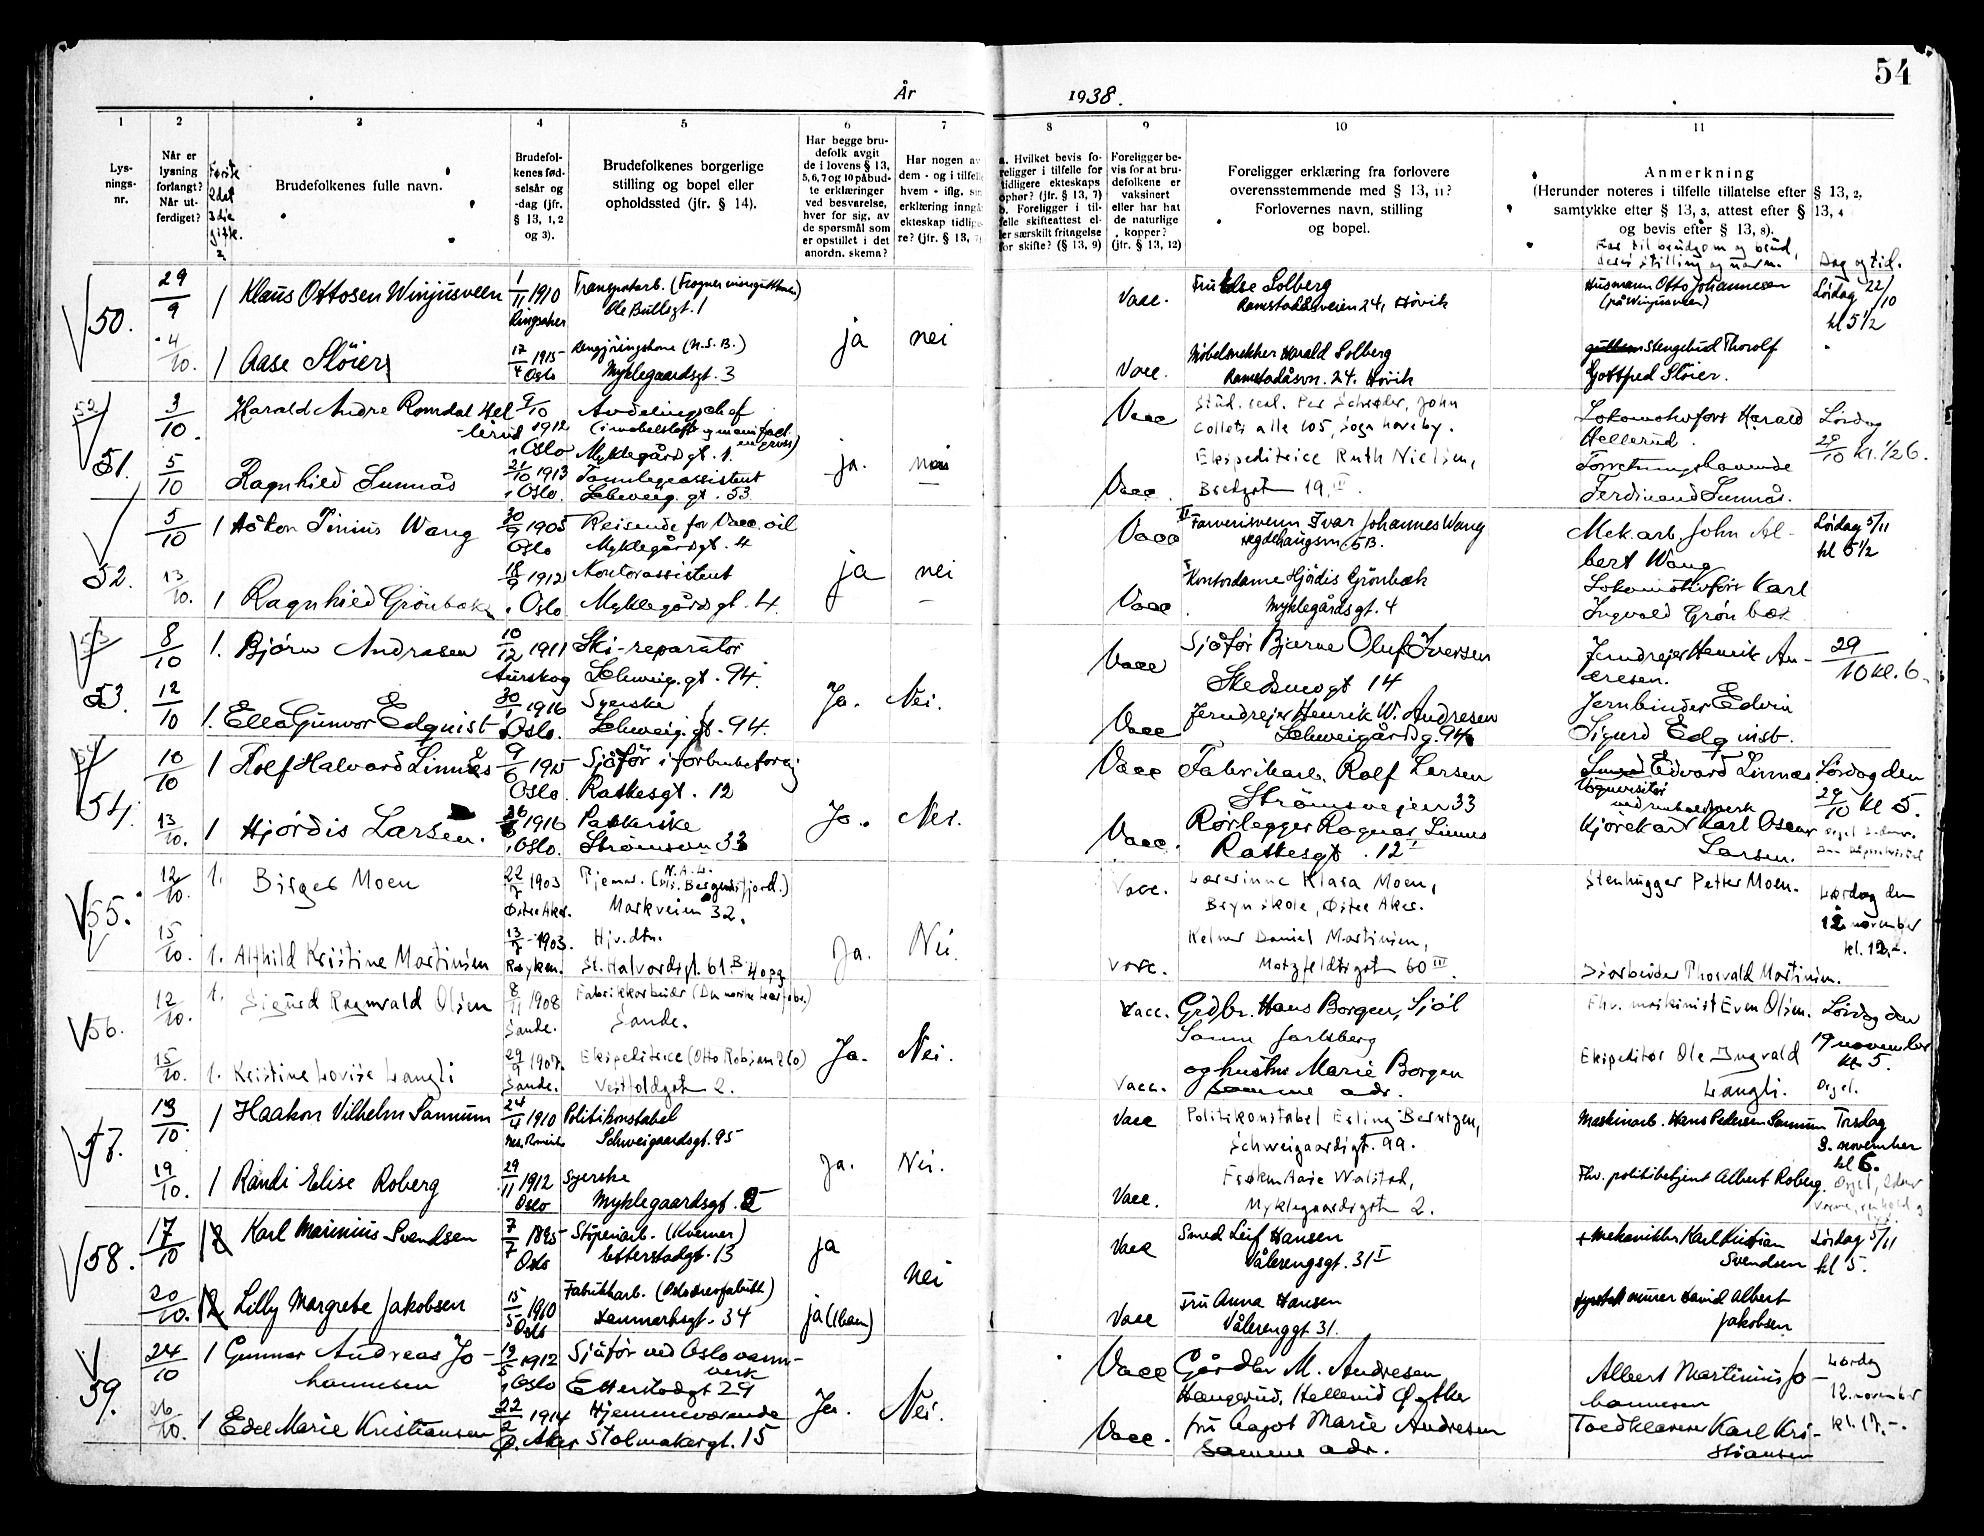 54
År 1938.
1 2 3 4 5 6 7 8 9 10 11
Lys-
nings-
nr.
Når er
lysning
forlangt?
Når ut-
ferdiget?
Brudefolkenes fulle navn.
Brudefol-
kenes fød-
selsår og
-dag (jfr.
§ 13, 1, 2
og 3).
Brudefolkenes borgerlige
stilling og bopel eller
opholdssted (jfr. § 14).
Har begge bru-
defolk avgit
de i lovens § 13,
5, 6, 7 og 10 påbud-
te erklæringer
ved besvarelse,
hver for sig, av
de spørsmål som
er opstillet i det
anordn. skema?
Har nogen av
dem - og i tilfelle
hvem - iflg. sin
erklæring inngå
ekteskap tidlige-
re? (jfr. § 13, 7)
a. Hvilket bevis fo-
religger i tilfelle for
tidligere ekteskaps
ophør? (jfr. § 13, 7)
b. Foreligger i til-
felle skifteattest el-
ler særskilt fritagelse
for skifte? (§ 13, 9)
Foreligger be-
vis for at bru-
defolkene er
vaksinert
eller har hat
de naturlige
kopper?
(jfr. § 13, 12)
Foreligger erklæring fra forlovere
overensstemmende med § 13, 11?
Forlovernes navn, stilling
og bopel.
Anmerkning
(Herunder noteres i tilfelle tillatelse efter § 13, 2,
samtykke efter § 13, 3, attest efter § 13, 4
og bevis efter § 13, 8).
Far til brudgom og brud,
deres stilling og navn.
Dag og tid.
50. 29/9 1 Klaus Ottosen Winjusveen 1/11 1910 Ringsaker
Ole Bullsgt. 1
Vacc. Fru Else Solberg
Ramstadåsveien 24, Høvik
Husmann Otto Johannesen
(på Winjusveen)
Lørdag 22/10
kl 5 1/2
4/10. 1 Aase Sløier 17/4 1915 Oslo
Rengjøringskone (N.S.B.)
Myklegaardsgt. 3
ja nei
Vacc. Møbelsnekker Harald Solberg
Ramstadåsvn. 24. Høvik
Stengebud Thorolf
Gottfred Sløier.
51. 3/10. Harald Andre Romdal Hel-
lerud 9/10 1912 Oslo
Avdelingschef
Myklegårdsgt. 1.
Vacc Stud. real. Per Schrøder, John
Colletts alle 105, Sogn haveby.
Lokomotivfører Harald
Hellerud.
Lørdag
29/10 kl. 1/2 6.
5/10 Ragnhild Sunnås 21/10 1913 Oslo.
Tannlegeassistent
Schweig. gt. 53
ja.
Vacc. Ekspeditrice Ruth Nielsen,
Bredgt 19.
Forretningshavende
Ferdinand Sunnås.
52. 5/10 1 Håkon Tinius Wang 30/9 1905 Oslo
Reisende for Vacc. oil
Myklegårdsgt. 4
Vacc Farverisvenn Ivar Johannes Wang
Mek. arb. John Al-
bert Wang
Lørdag 5/11
kl 5 1/2
13/10. 1 Ragnhild Grönbæk 18/9 1912 Oslo
Kontorassistent
Myklegårdsgt. 4.
ja nei
Vacc. Kontordame Hjørdis Grönbæk
Myklegårdsgt. 4
Lokomotivfører Karl
Ingvald Grönbæk
53. 8/10 1. Bjørn Andresen 10/12 1911 Aurskog
Ski-reparatör
Schweig. gt. 94.
Vacc Sjåför Bjarne Oluf Iversen
Skedsmogt 14
Jerndreier Henrik An-
dresen.
29/10 kl. 6.
12/10 1. Ella Gunvor Edquist 30/1 1916 Oslo.
Syerske
Schweig. gt. 94.
Ja. Nei.
Vacc Jerndreier Henrik W. Andresen
Schweigårdsg. 94
Jernbinder Edvin
Sigurd Edquist.
54. 10/10 1 Rolf Halvard Linnæs 9/6 1915 Oslo.
Sjåför i forbruksforeig
Rathesgt. 12
Vacc Fabrikarb. Rolf Larsen
Strömsveien 33
Edvard Linnæs
Lørdag den
29/10 kl 5.
13/10. 1 Hjördis Larsen. 26/ 1916 Oslo.
Pakkerske
Strömsvn 33
Ja. Nei.
Vacc. Rörlegger Ragnar Linnæs
Rathesgt. 12
Kjörekar Karl Oscar
Larsen.
55. 12/10. 1. Birger Moen 22/7 1903 Østre Aker.
Tjener. (M/s. Bergensfjord.) N.A.L.
Markveien 32.
Vacc. Lærerinne Klara Moen,
Bryn skole, Østre Aker.
Stenhugger Petter Moen.
Lørdag den
12 november
kl. 12.-
15/10. 1. Alfhild Kristine Martinsen 13/7 1903. Røyken.
Hjv. dtr.
St. Halvardsgt. 61 B
Ja. Nei.
Vacc. Kelner Daniel Martinsen,
Motzfeldtsgt 60 III
Thorvald Martinsen.
56. 12/10. 1. Sigurd Ragnvald Olsen 8/11 1908 Sande.
Fabrikkarbeider
Sande.
Vacc. Grdbr. Hans Borgen, Sjöl
Sann Jarlsberg
Fhv. maskinist Even Olsen.
Lørdag den
19 november
kl. 5.
Orgel.
15/10. 1. Kristine Lovise Langli 29/9 1907. Sande.
Ekspeditrice (Otto Robsam & Co)
Vestfoldgt 2.
Ja. Nei.
Vacc. og hustru Marie Borgen
samme adr.
Ekspeditør Ole Ingvald
Langli.
57. 13/10. 1 Haakon Vilhelm Sannum 24/4 1910
Politikonstabel
Schweigaardsgt. 95
Vacc Politikonstabel Erling Berntzen,
Schweigaardsgt. 99.
Maskinarb. Hans Pedersen Sannum
Torsdag
3. november
kl 6.
19/10. 1 Randi Elise Roberg 29/11 1912 Oslo
Syerske
Myklegaardsgt. 2
Ja. Nei.
Vacc. Frøken Aase Walstad,
Myklegaardsgt 2.
Fhv. politibetjent Albert Roberg.
58. 17/10 Karl Marinius Svendsen 7/7 1895 Oslo
Støperiarb. (Kværner)
Etterstadgt. 13
ja
Vacc Smed Leif Hansen
Vålerengsgt. 31 I
+ Mekaniker Karl Kristian
Svendsen
Lørdag 5/11
kl 5.
nei
20/10. Lilly Margrete Jakobsen 15/5 1910 Oslo
Danmarksgt. 34
ja
Vacc Fru Anna Hansen
Vålerenggt 31.
murer David Albert
Jakobsen
59. 24/10 1 Gunnar Andreas Jo-
hannesen 19/5 1912 Oslo
Sjåför ved Oslo vann-
verk
Etterstadgt 29
Vacc Gårdbr M. Andresen
Haugerud, Hellerud
Albert Martinius Jo-
hannesen
Lørdag
12. november
kl. 17.-.
26/10. 1 Edel Marie Kristiansen 22/2 1914 Ø. Aker
Hjemmeværende
Stolmakergt. 15
Ja. Nei.
Vacc. fru Aagot Marie Andresen
samme adr.
Karl Kri-
stiansen